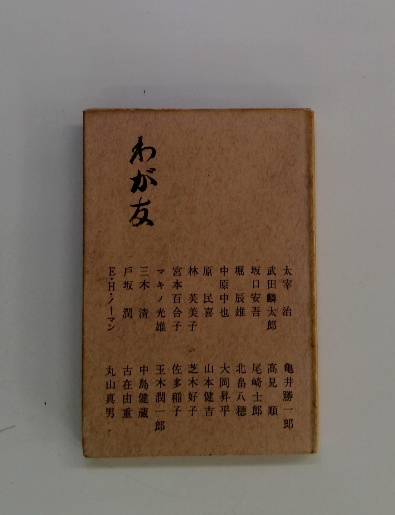 わが友
太宰　治　亀井勝一郎
武田麟太郎　高見　順
坂口安吾　尾崎士郎
堀　辰雄　北畠八穂
中原中也　大岡昇平
原　民喜　山本健吉
林　芙美子　芝木好子
宮本百合子　佐多稲子
マキノ光雄　玉木潤一郎
三木　清　中島健蔵
戸坂　潤　古在由重
E・H・ノーマン　丸山真男